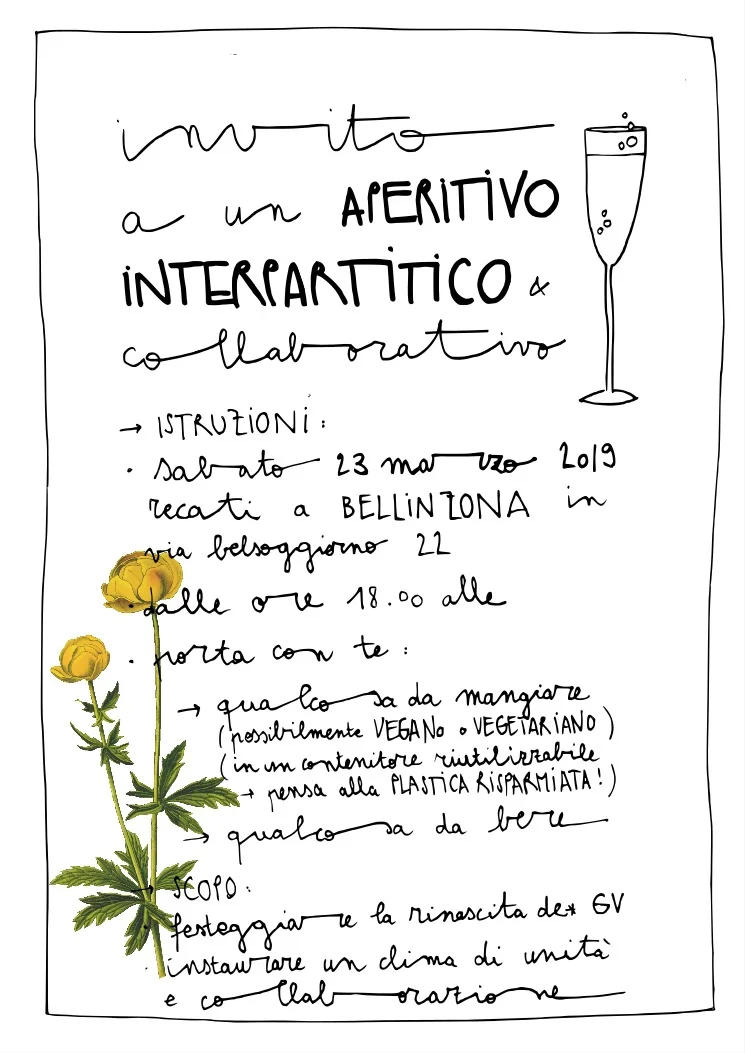 invito
a un APERITIVO
INTERPARTITICO &
collaborativo
→ ISTRUZIONI:
· sabato 23 marzo 2019
recati a BELLINZONA in
via belsoggiorno 22
· dalle ore 18.00 alle
· porta con te:
→ qualcosa da mangiare
(possibilmente VEGANO o VEGETARIANO)
(in un contenitore riutilizzabile
→ pensa alla PLASTICA RISPARMIATA!)
→ qualcosa da bere
→ SCOPO:
· festeggiare la rinascita de* GV
· instaurare un clima di unità
e collaborazione